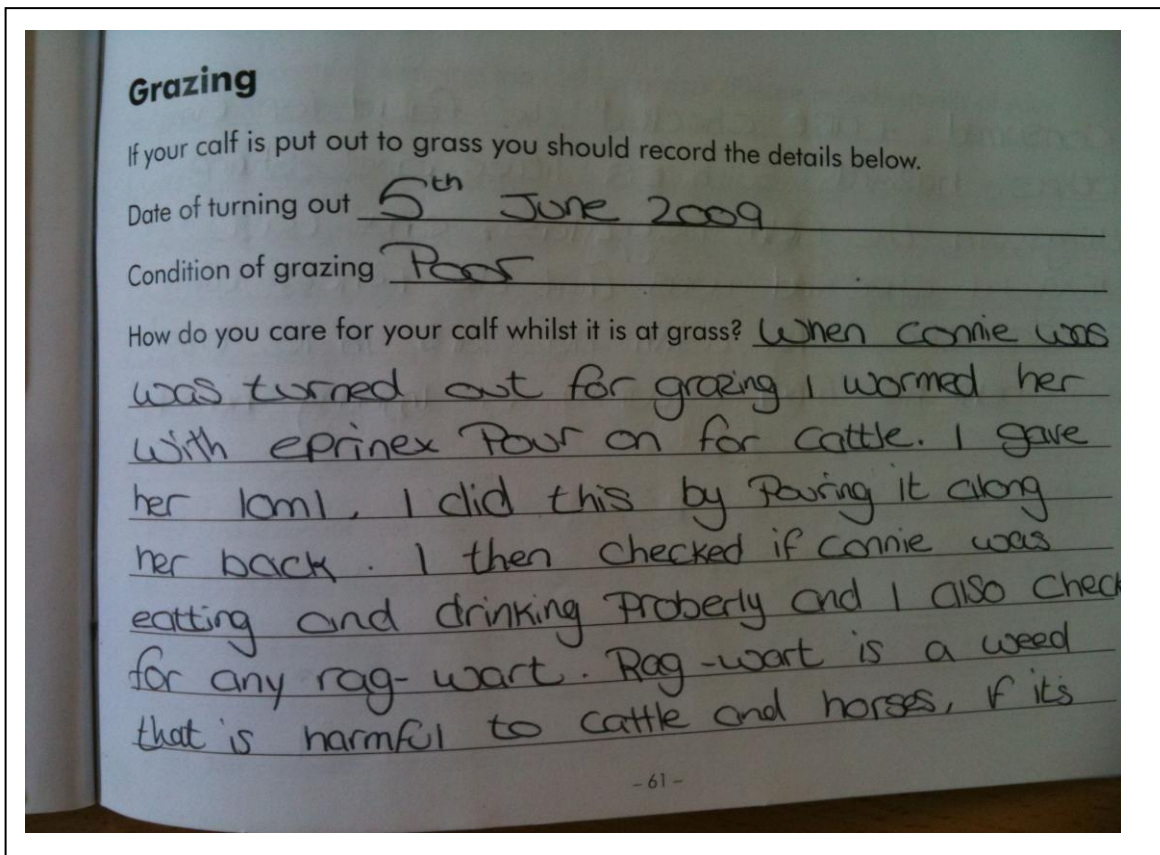 Grazing
If your calf is put out to grass you should record the details below.
Date of turning out 5th June 2009
Condition of grazing Poor
How do you care for your calf whilst it is at grass? When connie was
was turned out for grazing I wormed her
with eprinex Pour on for cattle. I gave
her 10ml, I did this by Pouring it along
her back. I then checked if connie was
eatting and drinking Proberly and I also check
for any rag-wart. Rag-wart is a weed
that is harmful to cattle and horses, if it's
- 61 -